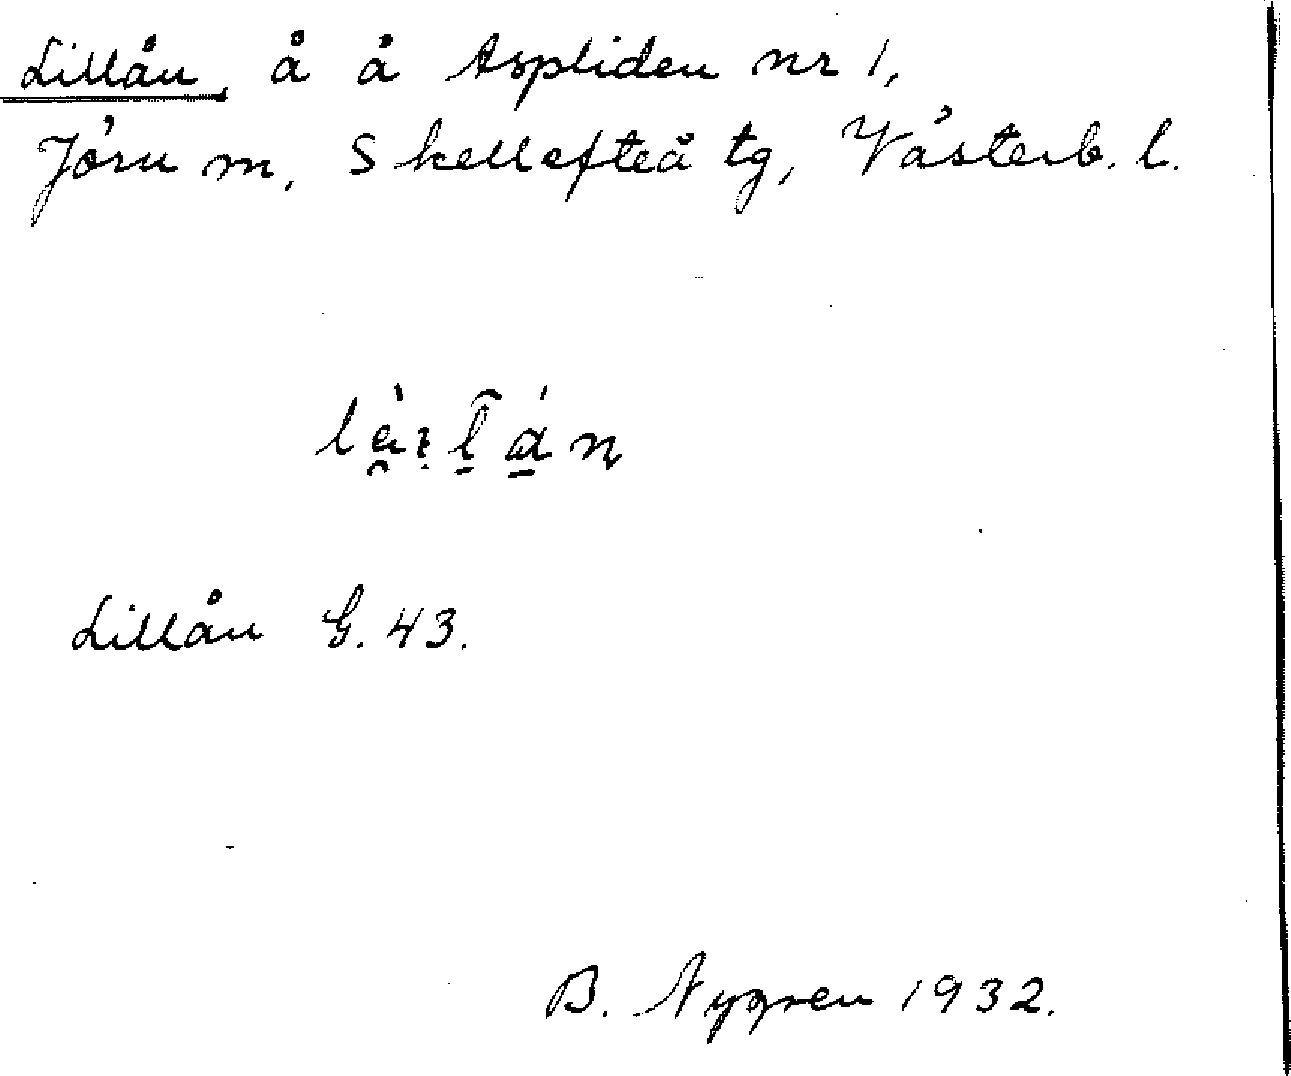 Lillån, å å Aspliden nr 1,
Jörn m, Skellefteå tg, Västerb. l.
Lillån G. 43.
B. Nygren 1932.